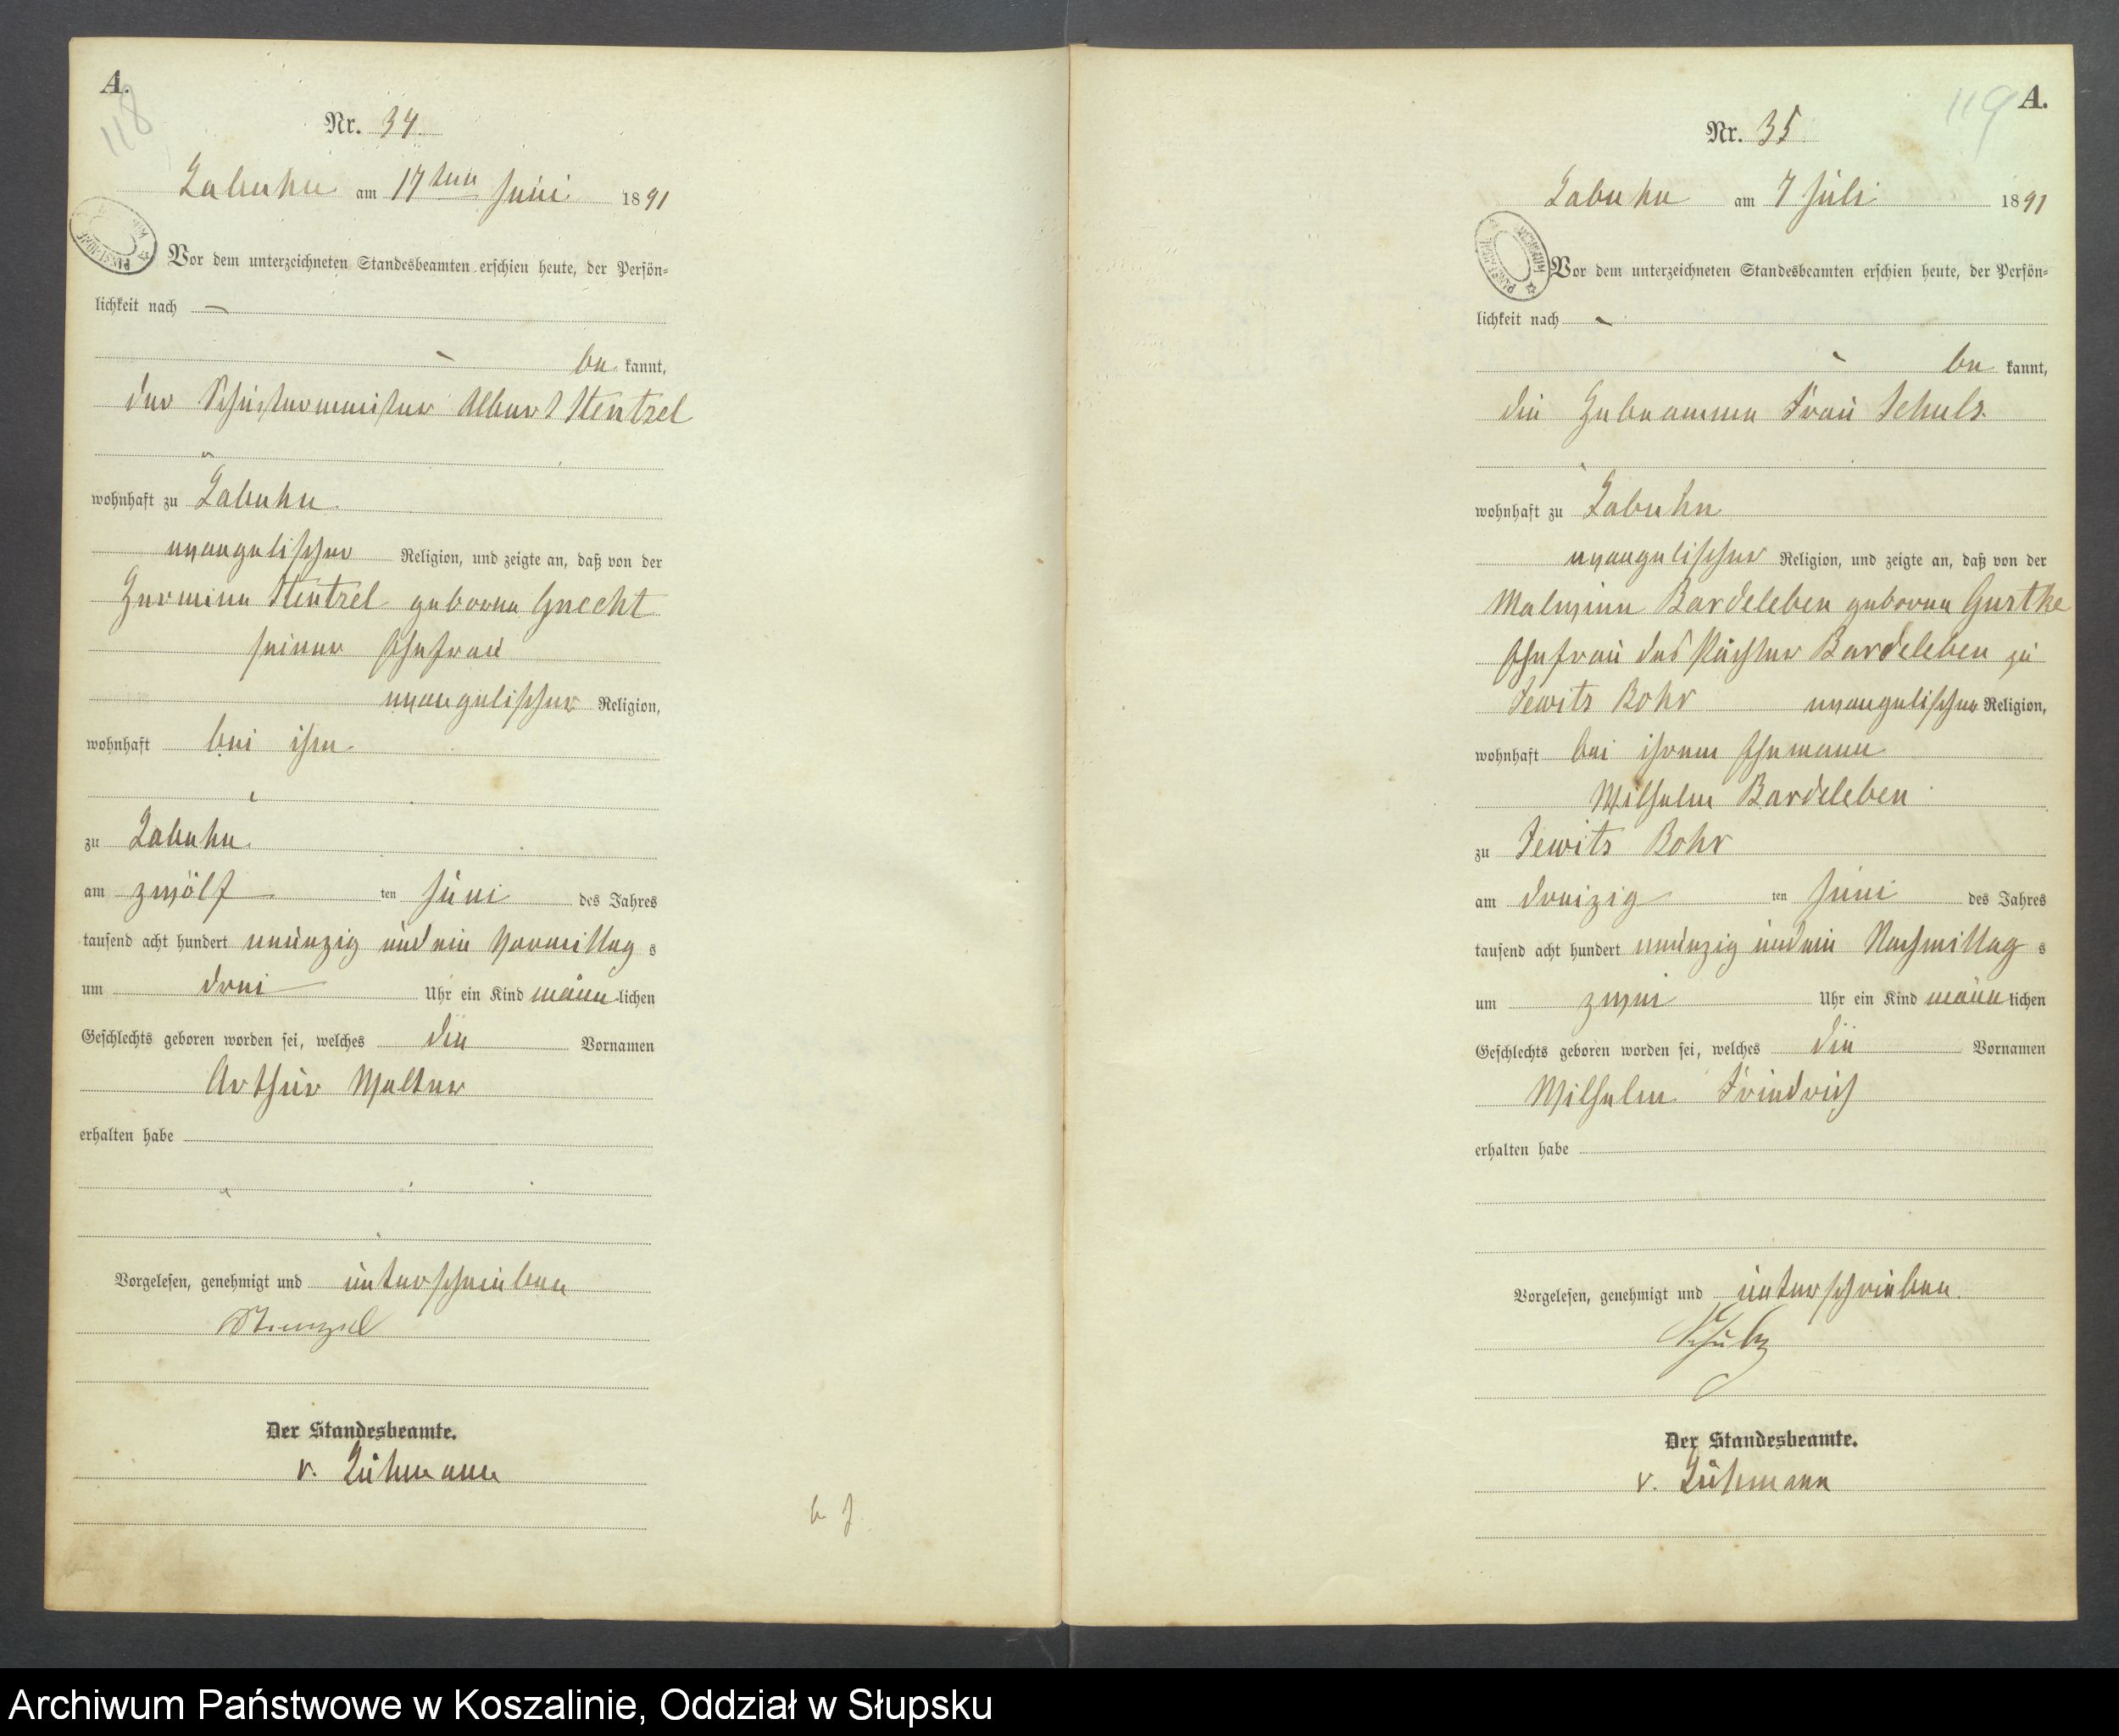 A.
118
Nr. 34.
Labuhn am 17ten Juni 1891
Vor dem unterzeichneten Standesbeamten erschien heute, der Persön=
lichkeit nach —
be kannt,
der Schustermeister Albert Stentzel
wohnhaft zu Labuhn.
evangelischer Religion, und zeigte an, daß von der
Hermine Stentzel geborene Gnecht
seiner Ehefrau
evangelischer Religion,
wohnhaft bei ihm
zu Labuhn.
am zwölf ten Juni des Jahres
tausend acht hundert neunzig und ein Vormittag s
um drei Uhr ein Kind männ lichen
Geschlechts geboren worden sei, welches den Vornamen
Arthur Walter
erhalten habe
Vorgelesen, genehmigt und unterschrieben
Stenzel
Der Standesbeamte.
v. Lühmann
A.
119
Nr. 35.
Labuhn am 7 Juli 1891
Vor dem unterzeichneten Standesbeamten erschien heute, der Persön=
lichkeit nach -
be kannt,
die Hebeamme Frau Schulz
wohnhaft zu Labuhn
evangelischer Religion, und zeigte an, daß von der
Malwine Bardeleben geborene Gurtke
Ehefrau des Pächter Bardeleben zu
Jewitz Bohr evangelischer Religion,
wohnhaft bei ihrem Ehemann
Wilhelm Bardeleben
zu Jewitz Bohr
am dreizig ten Juni des Jahres
tausend acht hundert neunzig und ein Nachmittag s
um zwei Uhr ein Kind männ lichen
Geschlechts geboren worden sei, welches die Vornamen
Wilhelm Friedrich
erhalten habe
Vorgelesen, genehmigt und unterschrieben.
Schulz
Der Standesbeamte.
v. Lühmann
Archiwum Państwowe w Koszalinie, Oddział w Słupsku